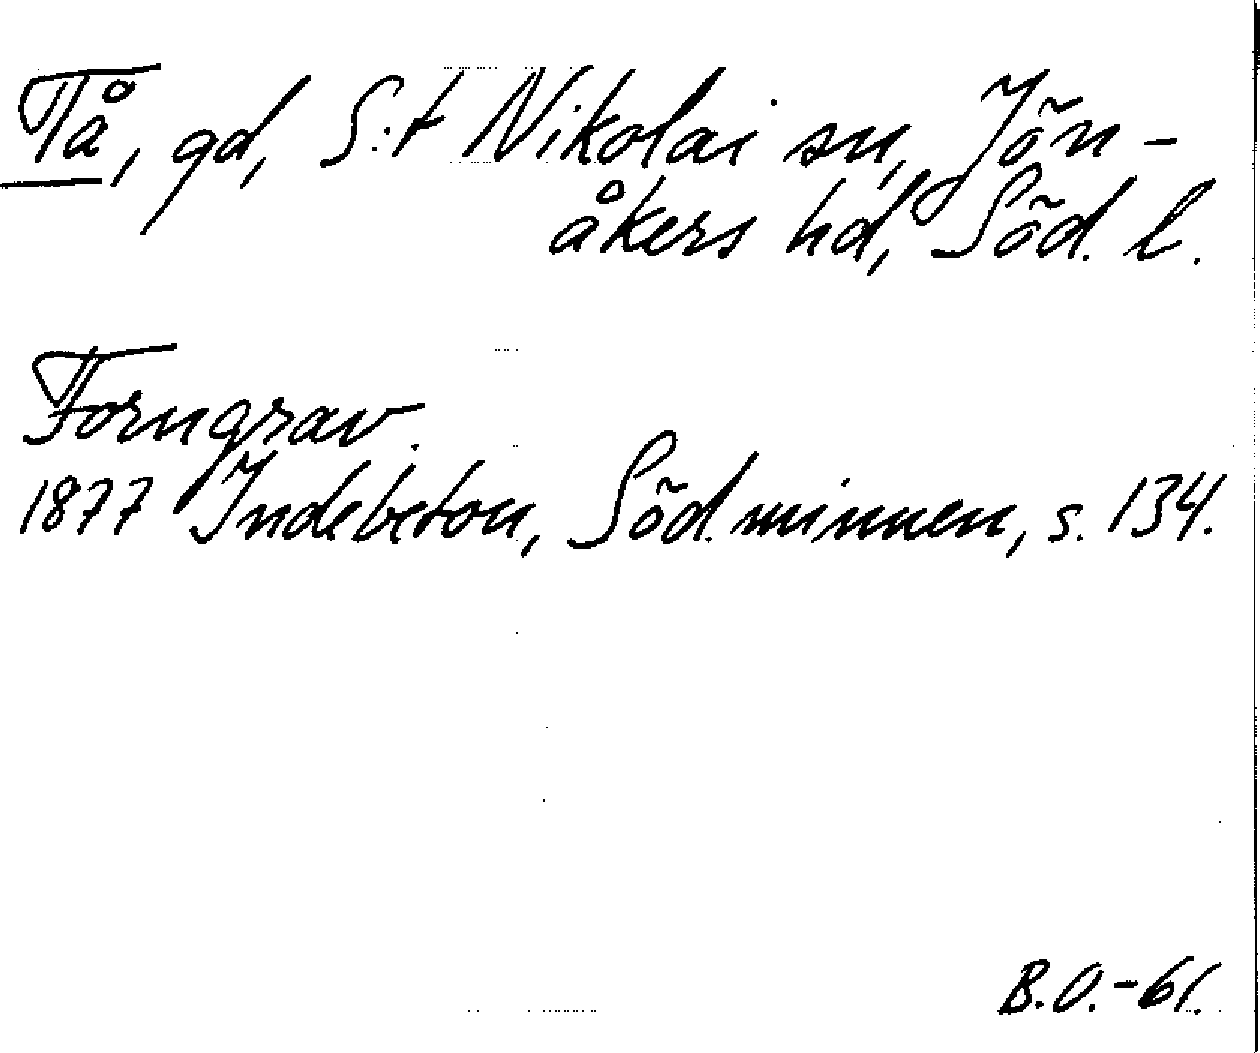 Tå, gd, S:t Nikolai sn, Jön-
åkers hd, Söd. l.
Forngrav.
1877 Indebetou, Söd. minnen, s. 134.
B.O.-61.